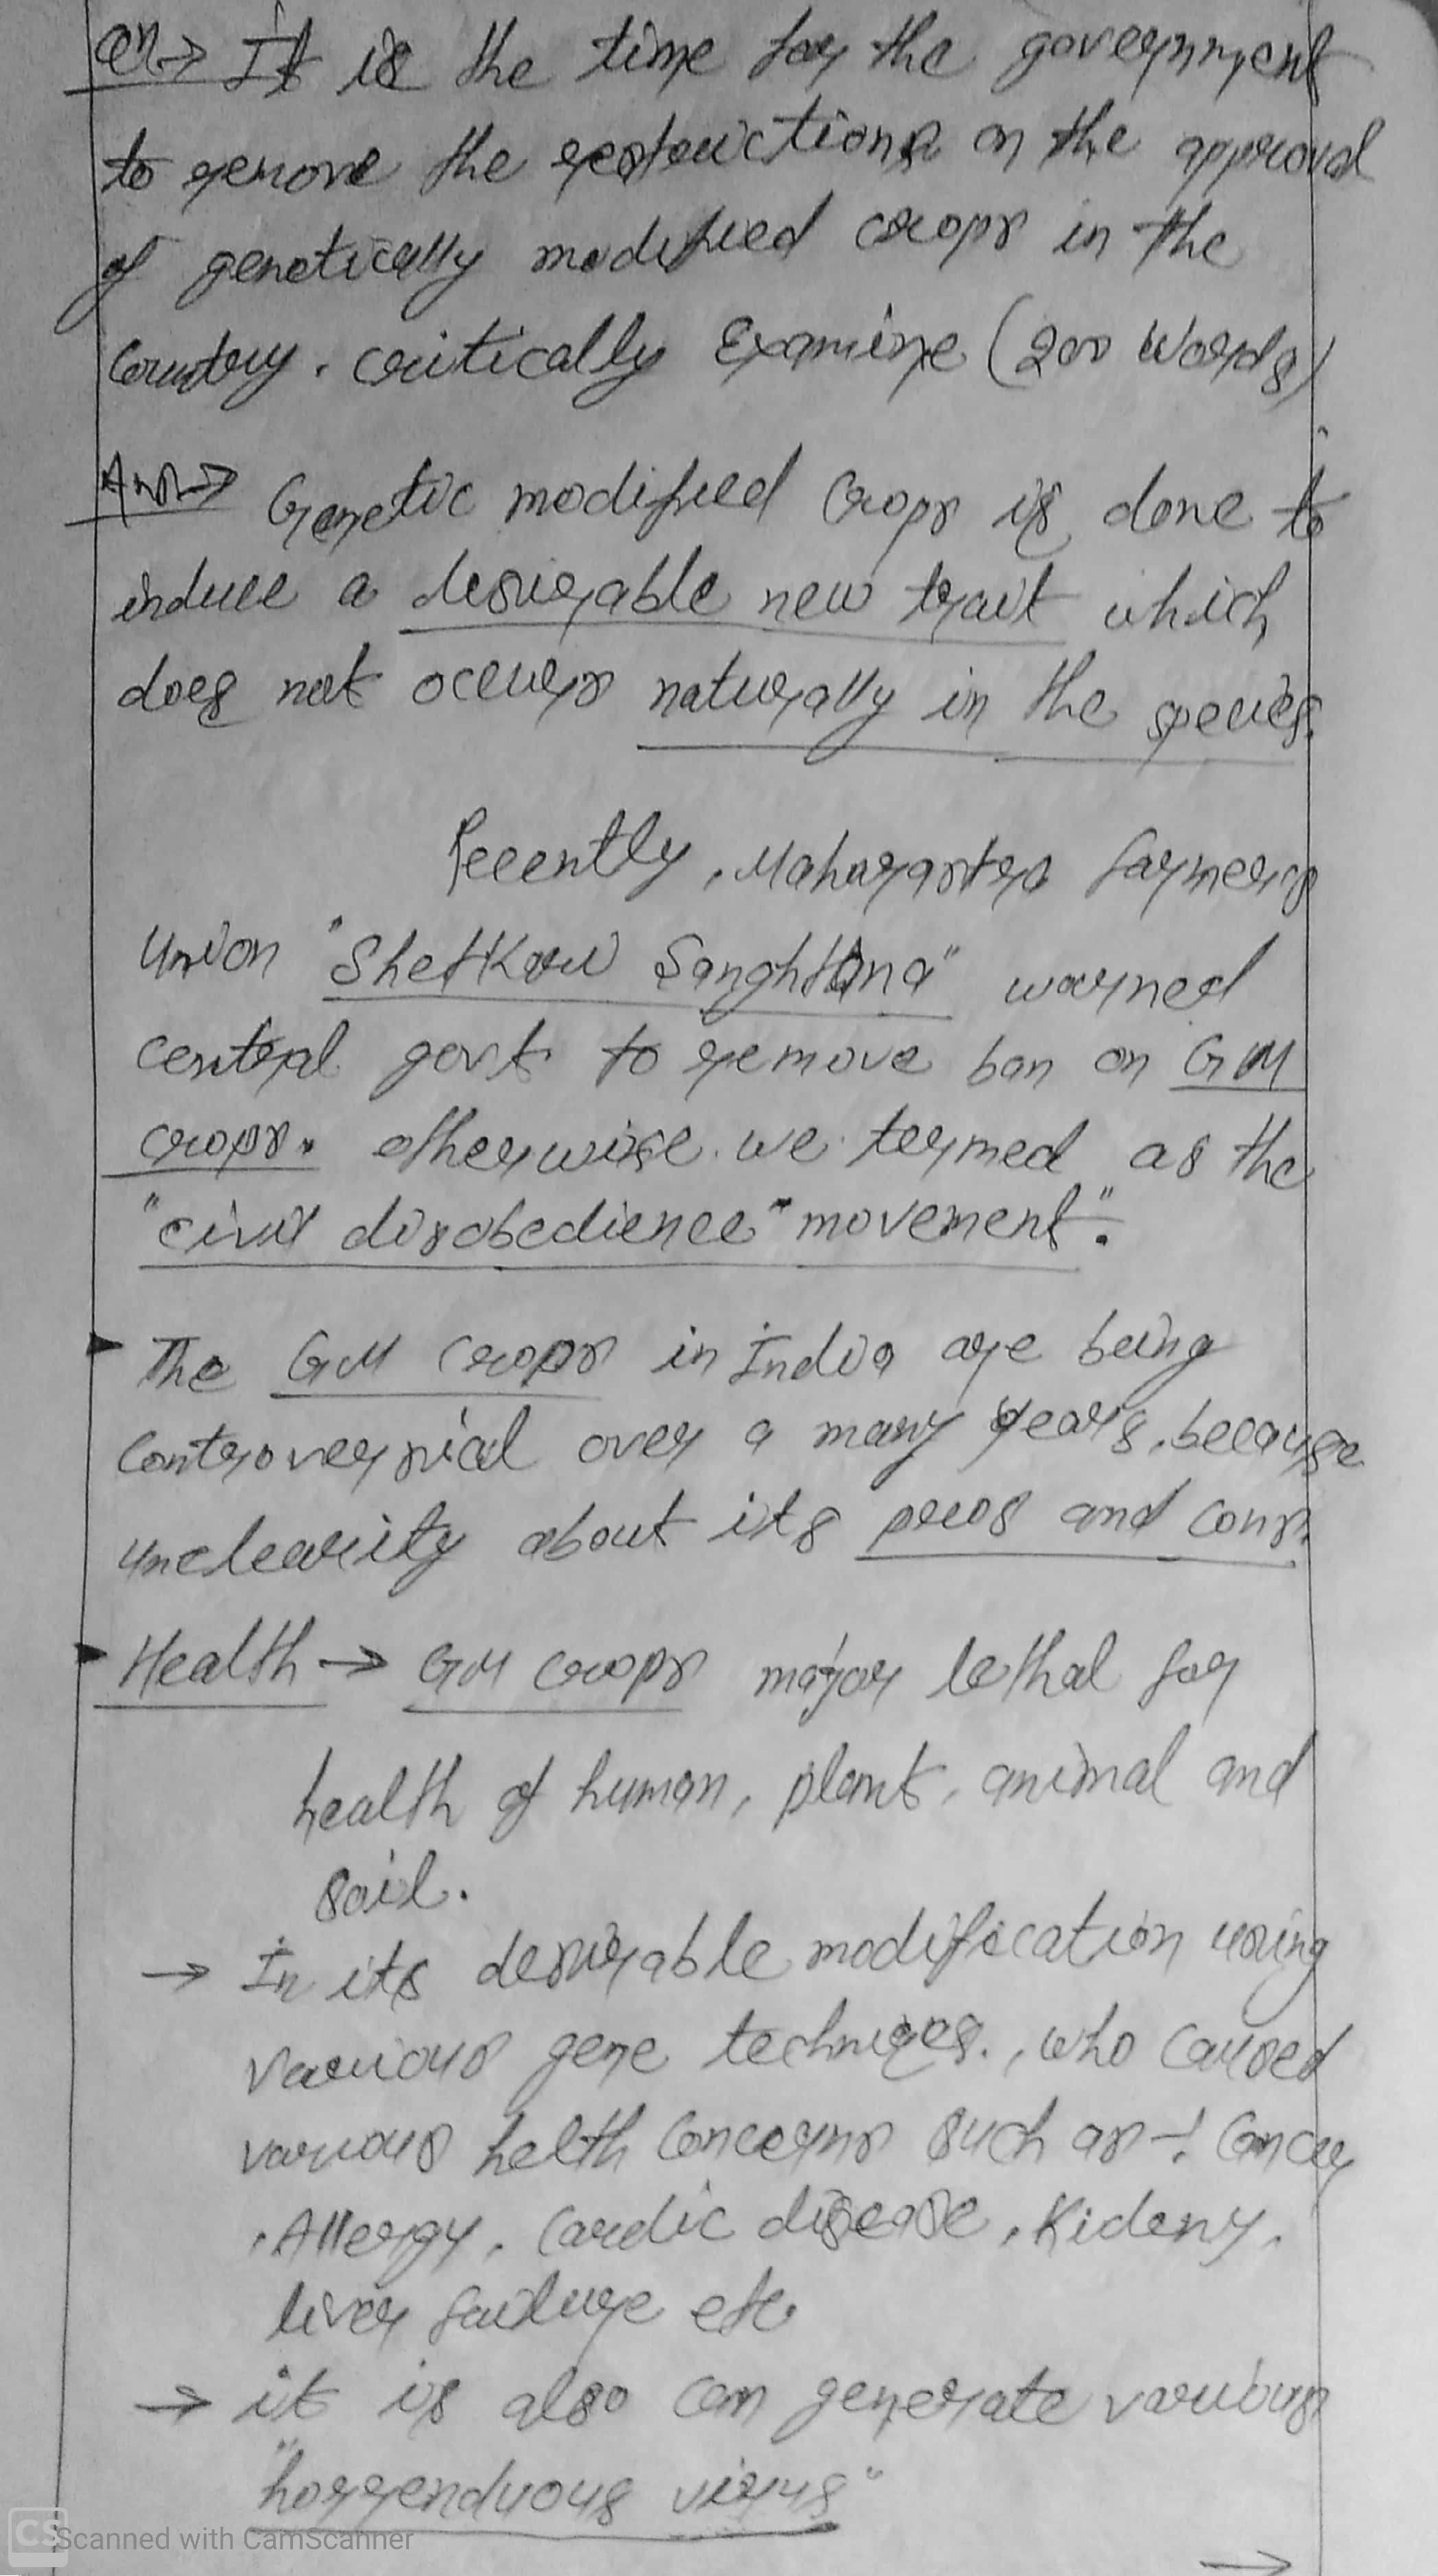 Qn→ It is the time for the government
to remove the restrictions on the approval
of genetically modified crops in the
Country. critically Examine (200 Words)
Ans→ Genetic modified Crops is done to
induce a desirable new trait which
does not occurs naturally in the species.
Recently, Maharastra farmers
Union "Shetkari Sanghtana" warned
central govt. to remove ban on GM
crops. otherwise we termed as the
"civil disobedience" movement".
The GM Crops in India are being
Controversial over a many years, because
unclearity about its pros and cons.
Health → GM crops major lethal for
health of human, plant, animal and
soil.
→ In its desirable modification using
various gene techniqes., who caused
various helth Concerns such as -: Cancer
, Allergy, Cardic disease, Kideny,
liver failure etc
→ it is also can generate various
"horrenduous virus"
→
CS Scanned with CamScanner